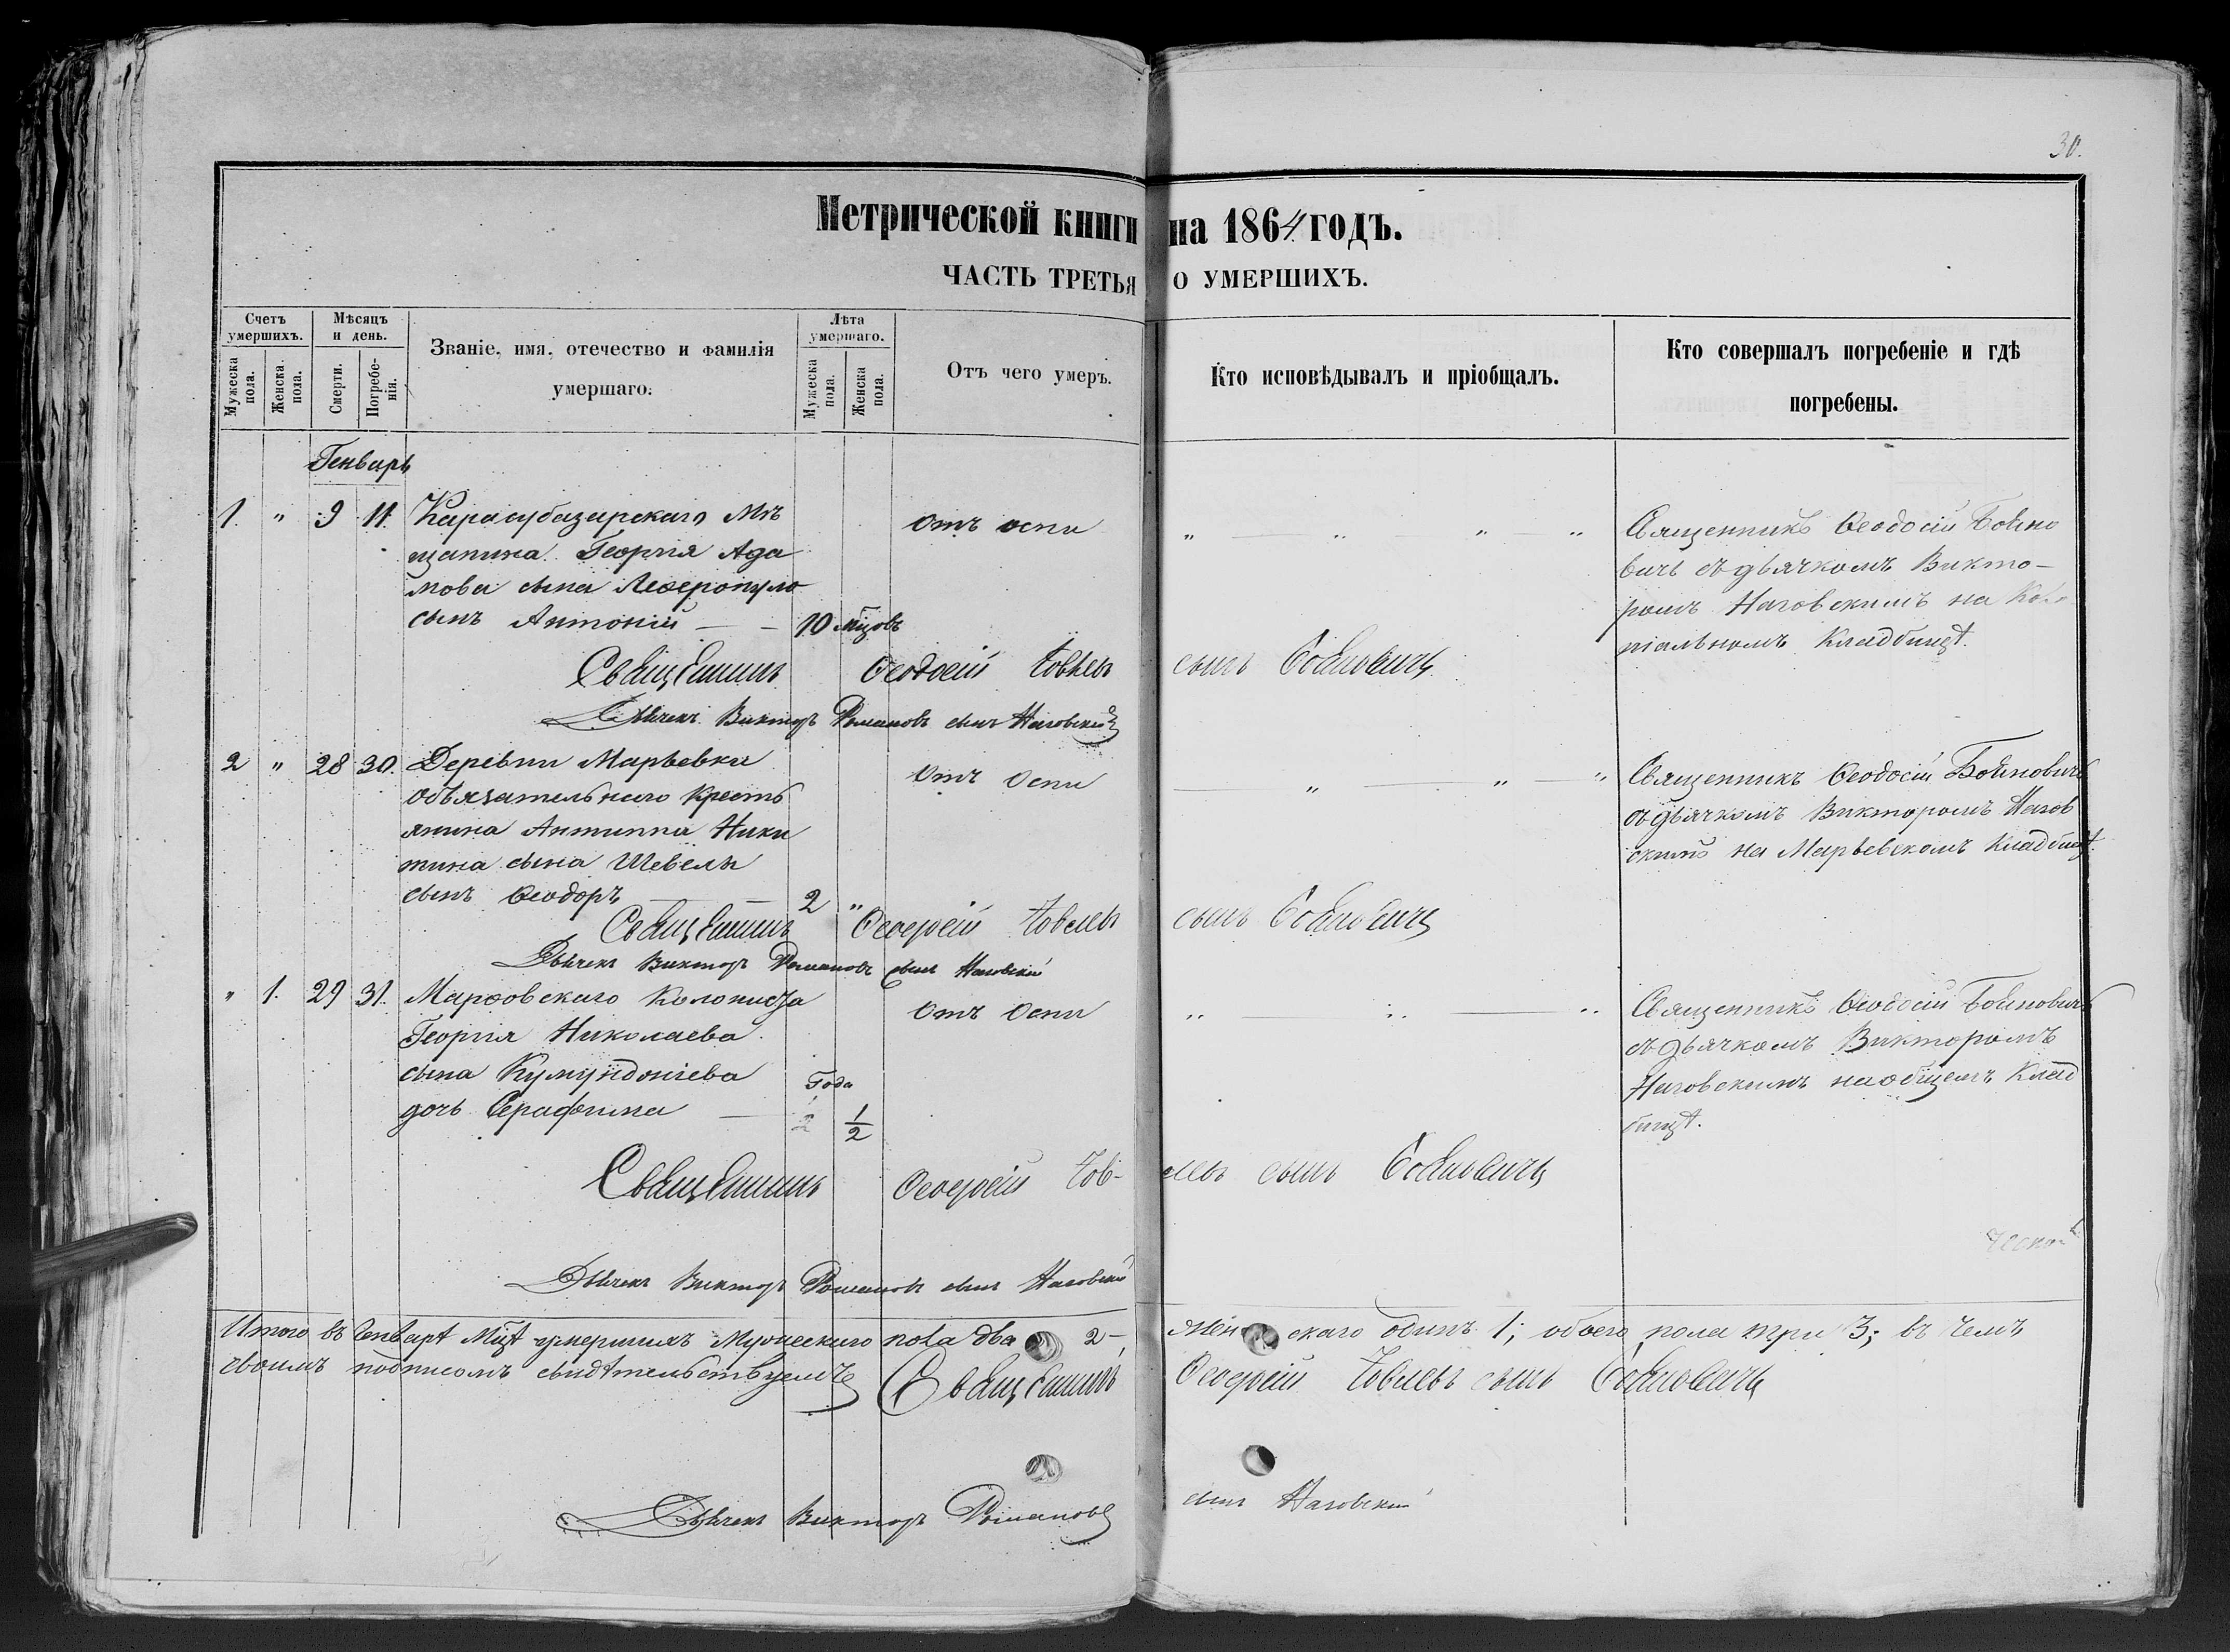 30.
Метрической книги на 1864 годъ.
ЧАСТЬ ТРЕТЬЯ О УМЕРШИХЪ.
Счетъ умершихъ.
Мужеска пола.
Женска пола.
Мѣсяцъ и день.
Смерти.
Погребенія.
Званіе, имя, отечество и фамилія умершаго.
Лѣта умершаго.
Мужеска пола.
Женска пола.
Отъ чего умеръ.
Кто исповѣдывалъ и пріобщалъ.
Кто совершалъ погребеніе и гдѣ погребены.
Генварь
1. " 9 11 Карасубазарскаго Мѣ
щанина Георгія Ада
мова сына Леферопуло
сынъ Антоній — — 10 мцовъ
отъ оспи
Священникъ Ѳеодосій Бойно
вичъ съ дьячкомъ Викто-
ромъ Наговскимъ на
кладбищѣ.
Священникъ Ѳеодосій Іовлевъ сынъ Бойновичъ
Дьячекъ Викторъ Романовъ сынъ Наговскій
2 " 28 30. Деревни Марьевки
обязательнаго кресть
янина Антиппа Ники
тина сына Шевеля
сынъ Ѳеодоръ — 2 "
отъ оспи
Священникъ Ѳеодосій Бойновичъ
съ дьячкомъ Викторомъ Нагов
скимъ на Марьевскомъ кладбищѣ.
Священникъ Ѳеодосій Іовлевъ сынъ Бойновичъ
Дьячекъ Викторъ Романовъ сынъ Наговскій
" 1. 29 31. Марфовскаго Колониста
Георгія Николаева
сына
дочь Серафима —
Года
1/2
отъ оспи
Священникъ Ѳеодосій Бойновичъ
съ дьячкомъ Викторомъ
Наговскимъ на общемъ клад
бищѣ.
Священникъ Ѳеодосій Іов-левъ сынъ Бойновичъ
Дьячекъ Викторъ Романовъ сынъ Наговскій
Итого въ Генварѣ Мцѣ умершихъ Мужескаго пола два 2, женскаго одинъ 1; обоего пола три 3; въ чемъ
своимъ подписомъ свидѣтельствуемъ Священникъ Ѳеодосій Іовлевъ сынъ Бойновичъ
Дьячекъ Викторъ Романовъ сынъ Наговскій